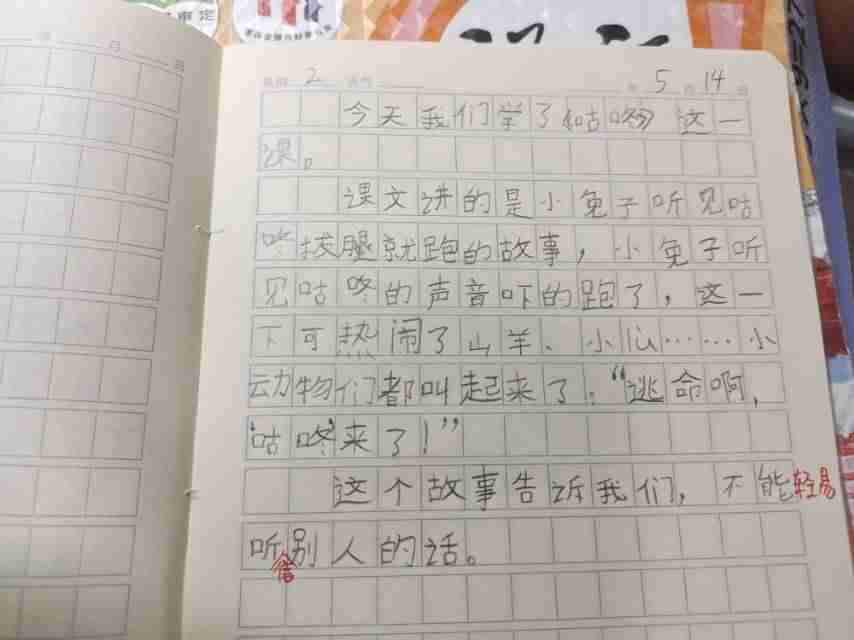 审定
月
2
5 月 14 日
今天我们学了咕咚这一
课。
课文讲的是小兔子听见咕
咚拔腿就跑的故事，小兔子听
见咕咚的声音吓的跑了，这一
下可热闹了山羊、小······小
动物们都叫起来了："逃命啊，
"咕咚"来了！"
这个故事告诉我们，不能轻易
听信别人的话。